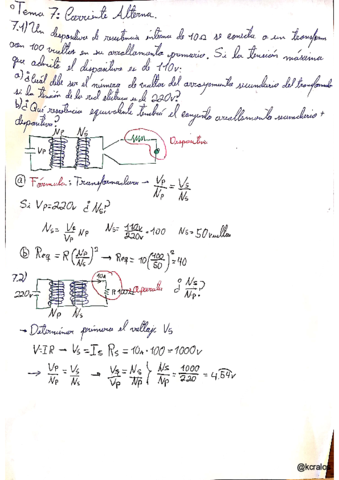 Tema 7: Corriente Alterna.
7.1) Un dispositivo de resistencia interna de 10Ω se conecta a un transforma
con 100 vueltas en su arrollamiento primario. Si la tensión máxima
que admite el dispositivo es de 110v:
a) ¿Cuál debe ser el número de vueltas del arrollamiento secundario del transformador
si la tensión de la red eléctrica es de 220V?
b) ¿Qué resistencia equivalente tendrá el conjunto arrollamiento secundario +
dispositivo?
Np Ns
Vp
Dispositivo
ⓐ Fórmula: Transformadores → Vp/Np = Vs/Ns
Si Vp=220v ¿Ns?
Ns = Vs/Vp Np Ns = 110v/220v · 100 Ns = 50 vueltas
ⓑ Req = R(Np/Ns)² → Req = 10(100/50)² = 40
7.2)
220v
10A
R=100Ω
Aparato
¿Ns/Np?
Np Ns
→ Determinar primero el voltaje Vs
V=IR → Vs = Is Rs = 10A · 100 = 1000v
→ Vp/Np = Vs/Ns → Vs/Vp = Ns/Np } Ns/Np = 1000/220 = 4.54v
@kcralos